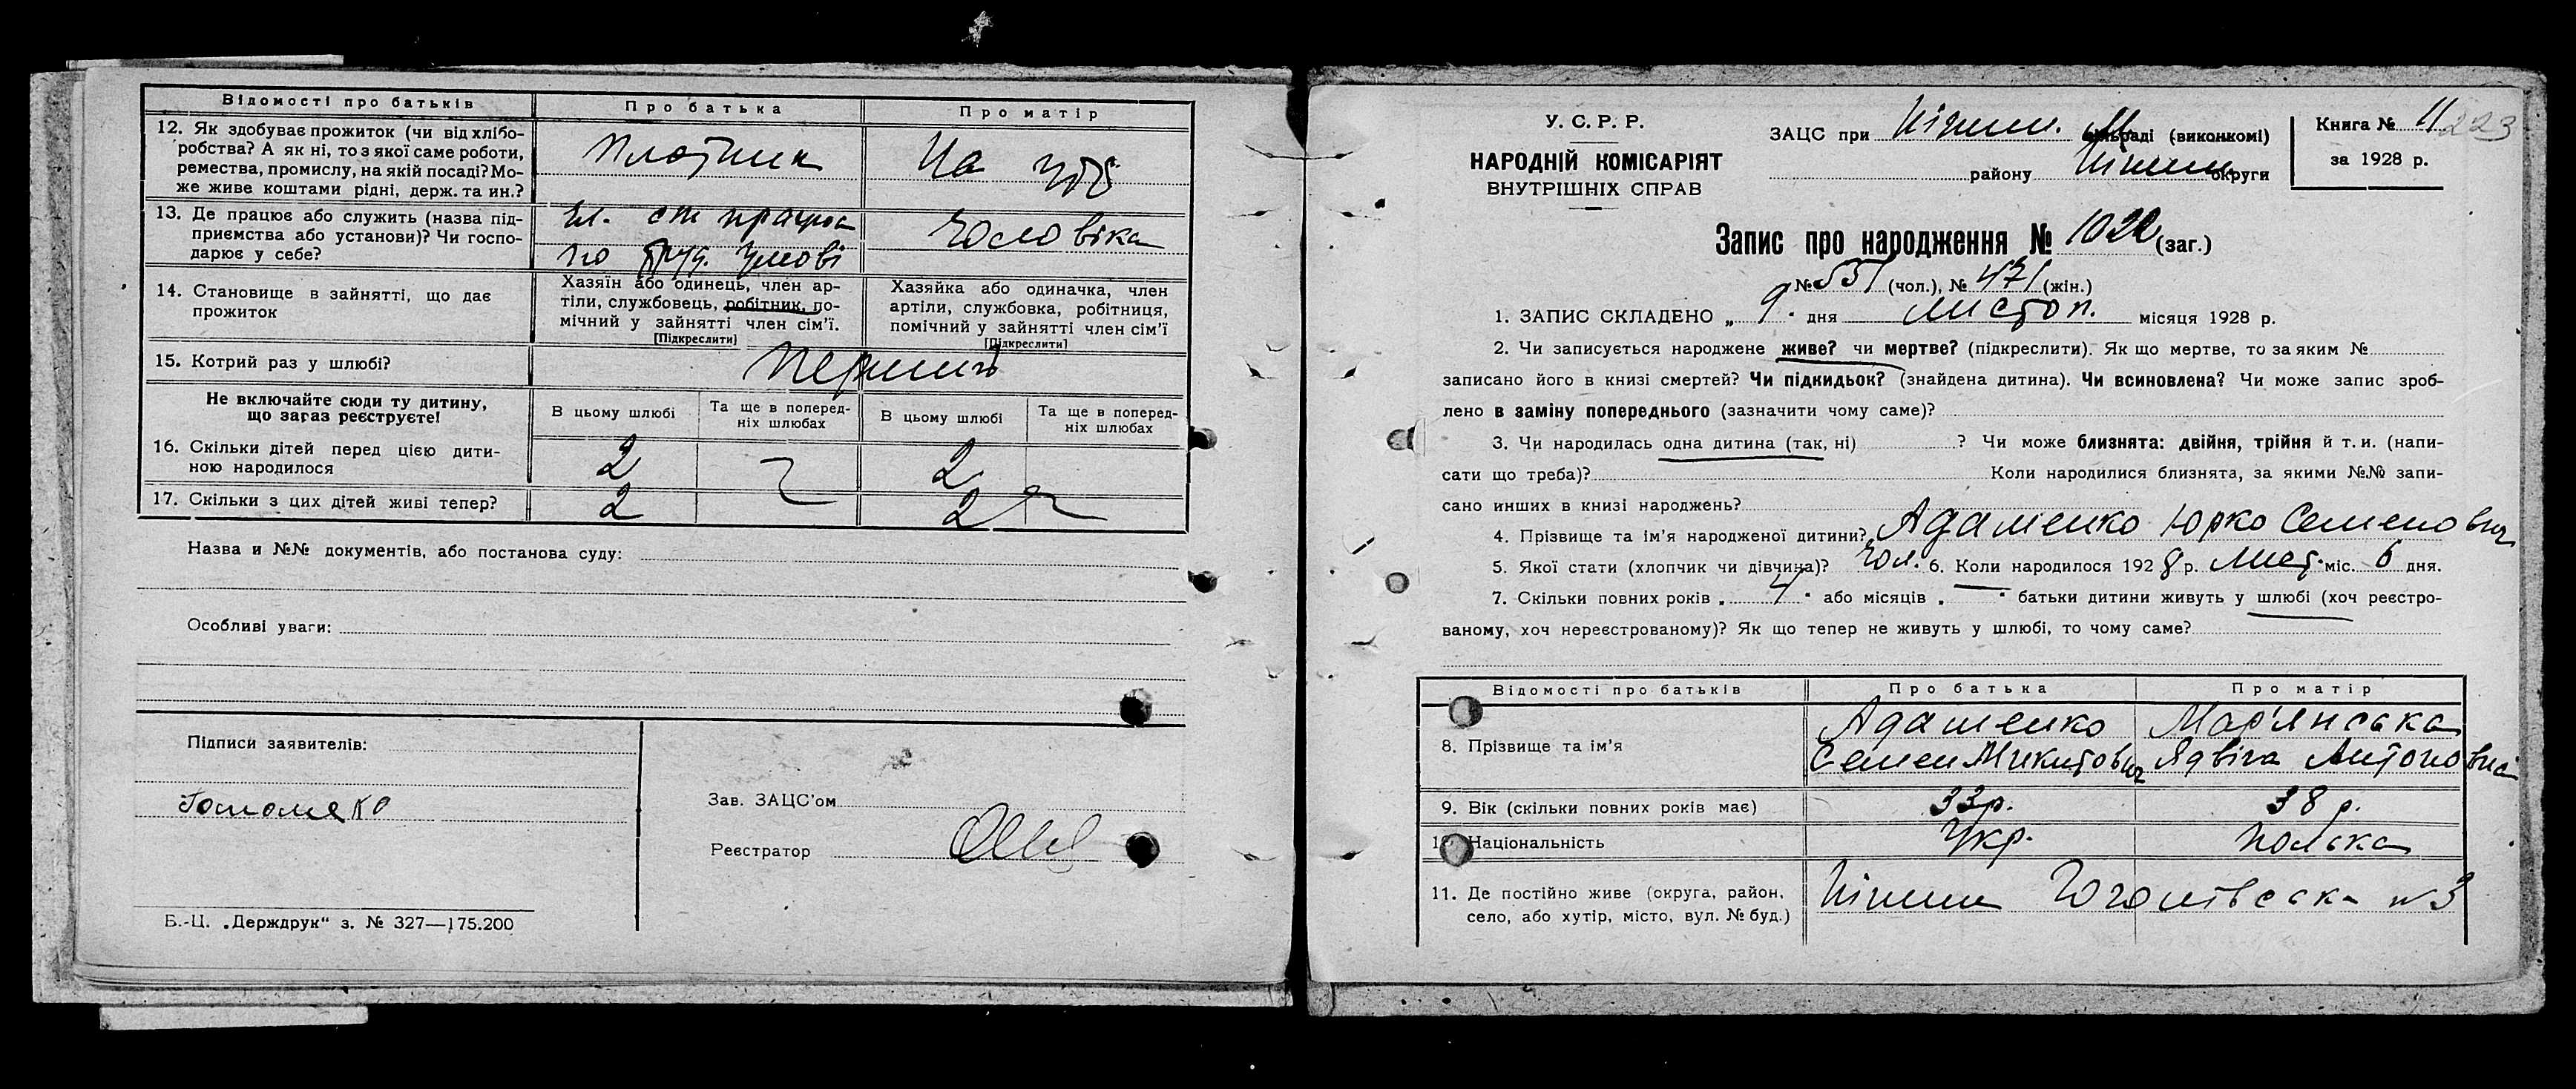 Відомості про батьків Про батька Про матір
12. Як здобуває прожиток (чи від хлібо-
робства? А як ні, то з якої саме роботи,
ремества, промислу, на якій посаді? Мо-
же живе коштами рідні, держ. та ин.?
Плотник На утр
13. Де працює або служить (назва під-
приємства або установи)? Чи госпо-
дарює у себе?
ст працює Чоловіка
по труд. умові
14. Становище в зайнятті, що дає
прожиток
Хазяїн або одинець, член ар-
тіли, службовець, робітник, по-
мічний у зайнятті член сім'ї.
[Підкреслити]
Хазяйка або одиначка, член
артіли, службовка, робітниця,
помічний у зайнятті член сім'ї
[Підкреслити]
15. Котрий раз у шлюбі?
Не включайте сюди ту дитину,
що загаз реєструєте!
В цьому шлюбі Та ще в поперед-
ніх шлюбах В цьому шлюбі Та ще в поперед-
ніх шлюбах
16. Скільки дітей перед цією дити-
ною народилося 2 2
17. Скільки з цих дітей живі тепер? 2 2
Назва и №№ документів, або постанова суду:
Особливі уваги:
Підписи заявителів:
Зав. ЗАЦС'ом
Реєстратор
Б.-Ц. „Держдрук" з. № 327—175.200
У. С. Р. Р.
НАРОДНІЙ КОМІСАРІЯТ
ВНУТРІШНІХ СПРАВ
ЗАЦС при раді (виконкомі)
району округи
Книга № 11 223
за 1928 р.
Запис про народження № 1022 (заг.)
№ 551 (чол.), № 471 (жін.)
1. ЗАПИС СКЛАДЕНО „ 9 " дня листоп. місяця 1928 р.
2. Чи записується народжене живе? чи мертве? (підкреслити). Як що мертве, то за яким №
записано його в книзі смертей? Чи підкидьок? (знайдена дитина). Чи всиновлена? Чи може запис зроб-
лено в заміну попереднього (зазначити чому саме)?
3. Чи народилась одна дитина (так, ні) ? Чи може близнята: двійня, трійня й т. и. (напи-
сати що треба)? Коли народилися близнята, за якими №№ запи-
сано инших в книзі народжень?
4. Прізвище та ім'я народженої дитини? Адаменко Юрко Семенович
5. Якої стати (хлопчик чи дівчина)? Чол. 6. Коли народилося 1928 р. Лист. міс. 6 дня.
7. Скільки повних років „ 4 " або місяців „ — " батьки дитини живуть у шлюбі (хоч реєстро-
ваному, хоч нереєстрованому)? Як що тепер не живуть у шлюбі, то чому саме?
Відомості про батьків Про батька Про матір
8. Прізвище та ім'я
Адаменко Мар'янська
Семен Микитович Ядвіга Антоновна
9. Вік (скільки повних років має) 33р. 38 р.
Національність Укр. Полька
11. Де постійно живе (округа, район,
село, або хутір, місто, вул. № буд.)
Гоголівська № 3